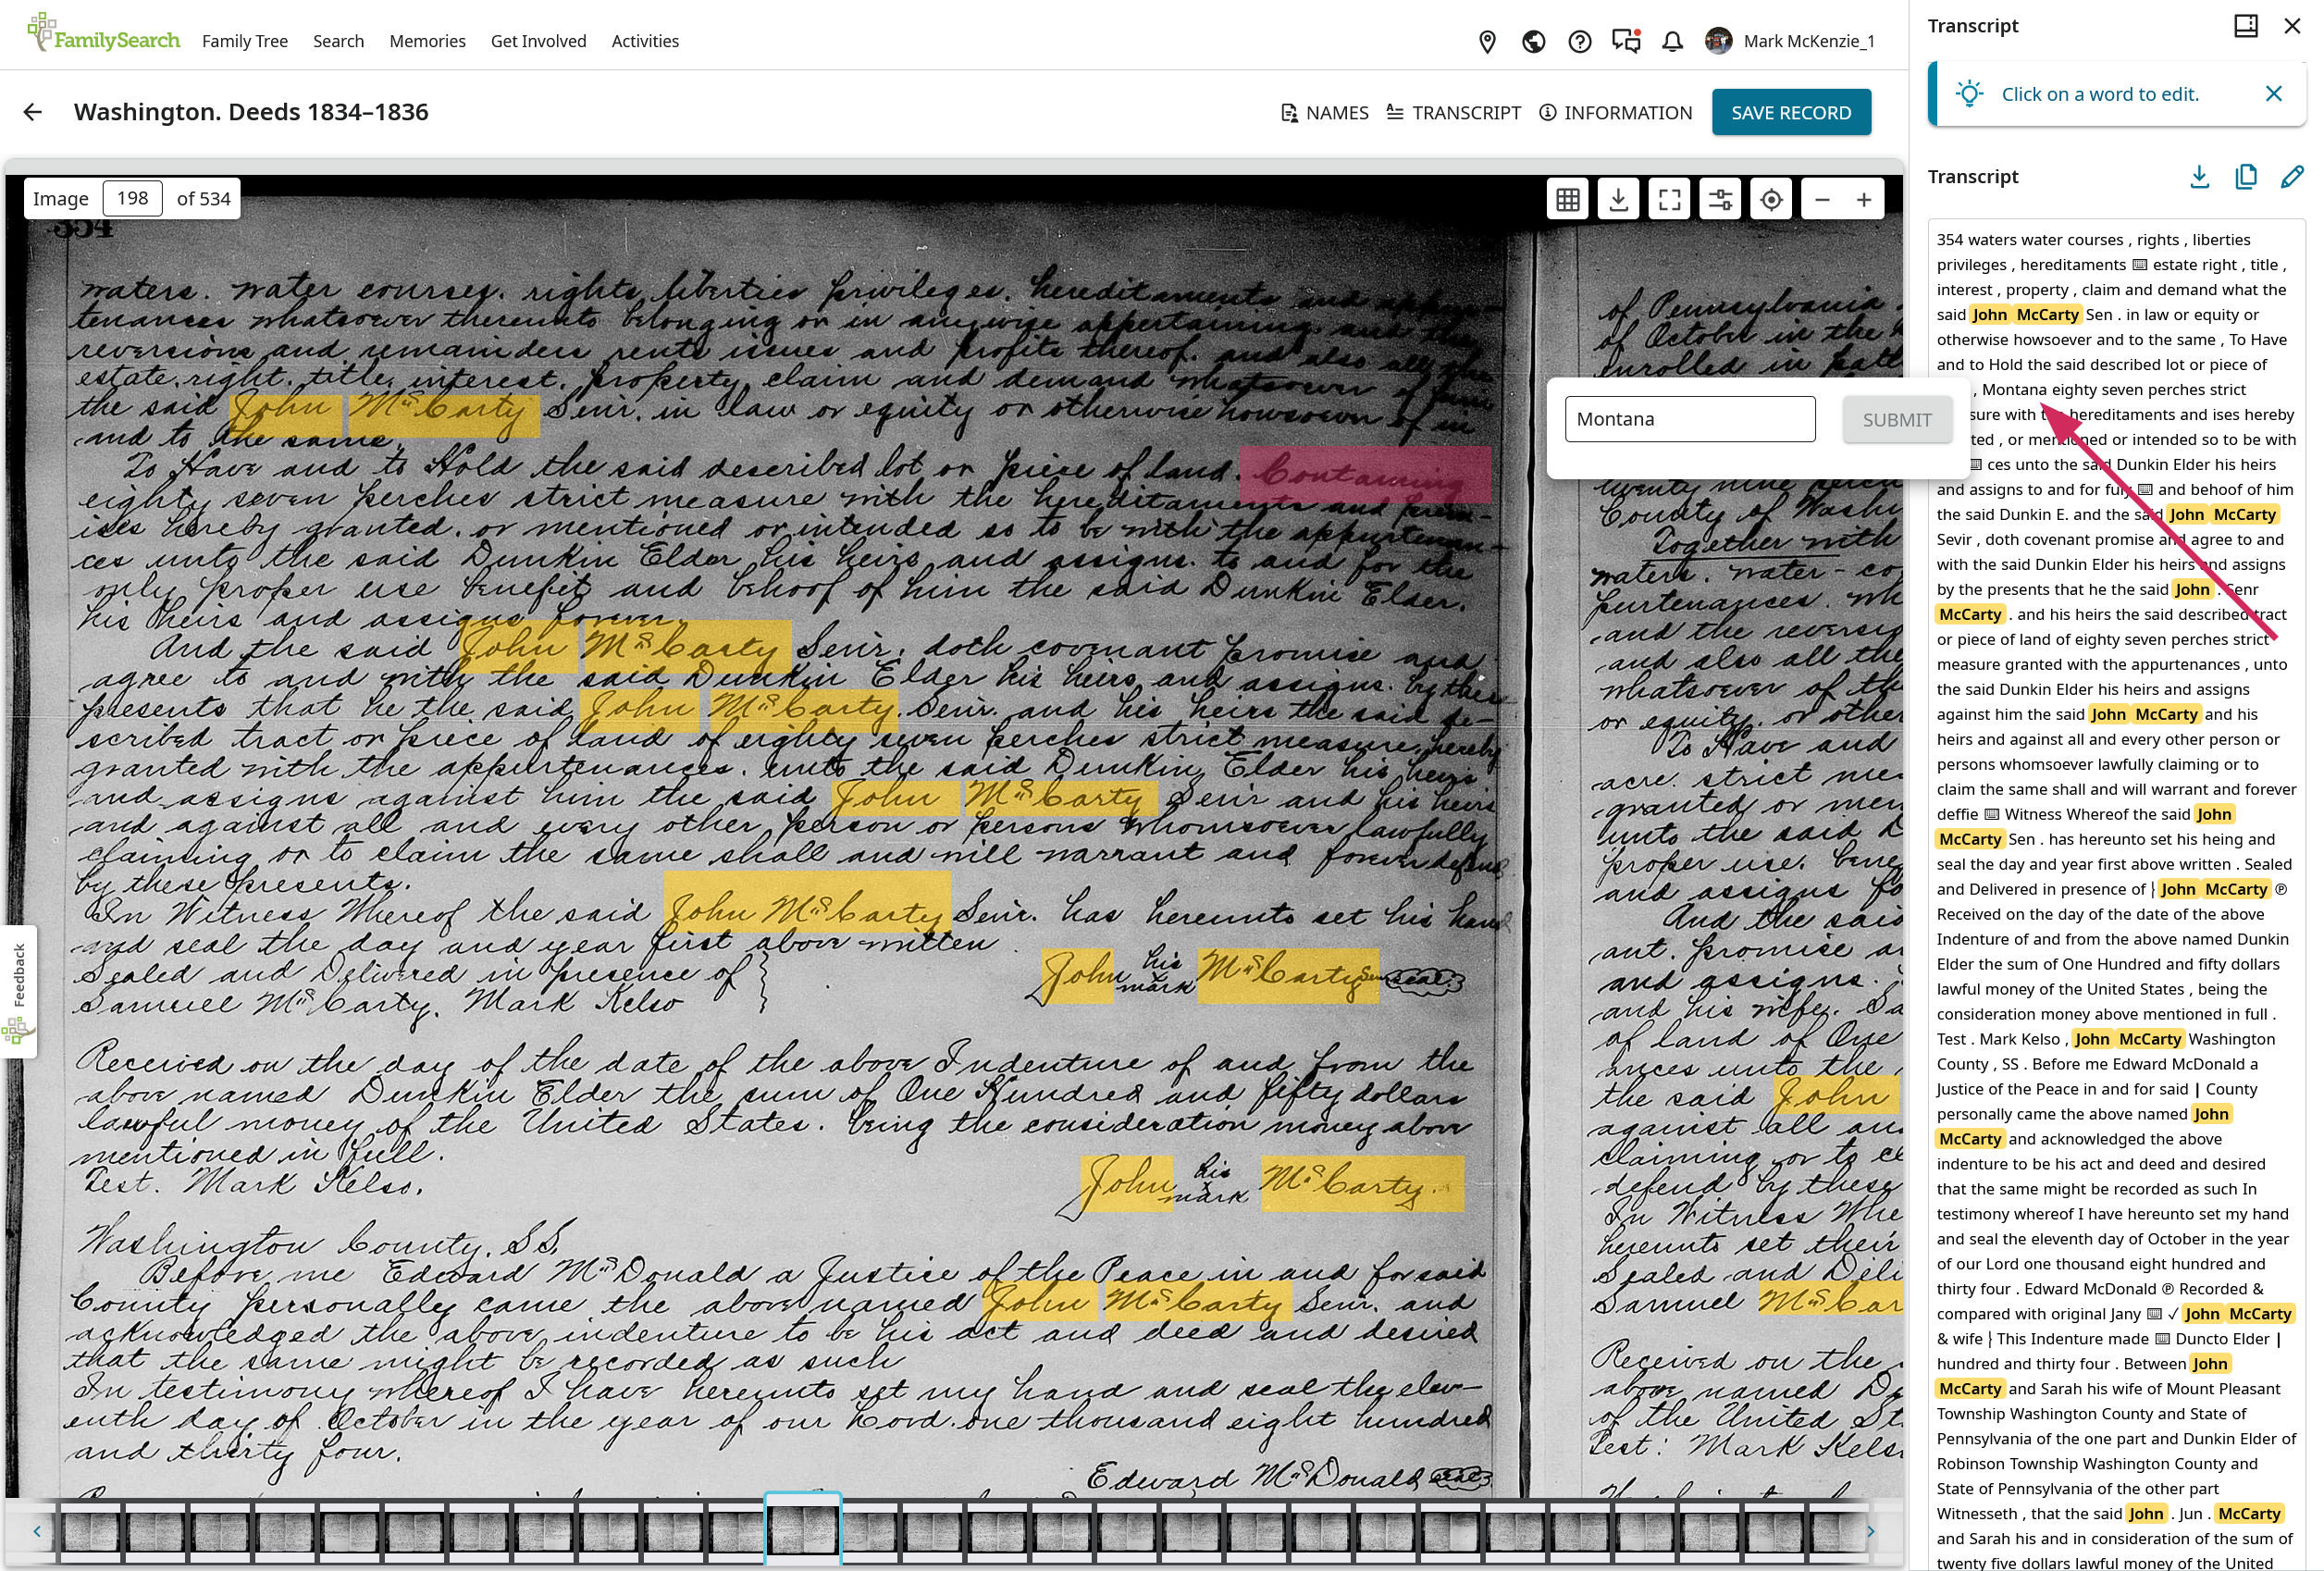 FamilySearch
Family Tree
Search
Memories
Get Involved
Activities
Mark McKenzie_1
Washington. Deeds 1834–1836
NAMES
TRANSCRIPT
INFORMATION
SAVE RECORD
Image 198 of 534
354
waters. water courses. rights, liberties privileges. hereditaments and appur-
tenances whatsoever thereunto belonging or in anywise appertaining and the
reversions and remainders rents issues and profits thereof. and also all the
estate. right. title. interest. property claim and demand whatsoever of him
the said John McCarty Senr. in law or equity or otherwise howsoever of in
and to the same.
To Have and to Hold the said described lot or piece of land. Containing
eighty seven perches strict measure with the hereditaments and prem-
ises hereby granted. or mentioned or intended so to be with the appurtenan-
ces unto the said Dunkin Elder his heirs and assigns. to and for the
only proper use benefit and behoof of him the said Dunkin Elder.
his heirs and assigns forever.
And the said John McCarty Senr. doth covenant promise and
agree to and with the said Dunkin Elder his heirs and assigns. by these
presents that he the said John McCarty. Senr. and his heirs the said de-
scribed tract or piece of land of eighty seven perches strict measure, hereby
granted with the appurtenances. unto the said Dunkin Elder his heirs
and assigns against him the said John McCarty Senr and his heirs
and against all and every other person or persons whomsoever lawfully
claiming or to claim the same shall and will warrant and forever defend
by these presents.
In Witness Whereof the said John McCarty Senr. has hereunto set his hand
and seal the day and year first above written
Sealed and Delivered in presence of
Samuel McCarty. Mark Kelso
John his mark McCarty Senr seal
Received on the day of the date of the above Indenture of and from the
above named Dunkin Elder the sum of One Hundred and fifty dollars
lawful money of the United States. being the consideration money above
mentioned in full.
Test. Mark Kelso.
John his x mark McCarty.
Washington County. SS.
Before me Edward McDonald a Justice of the Peace in and for said
County personally came the above named John McCarty Senr. and
acknowledged the above indenture to be his act and deed and desired
that the same might be recorded as such
In testimony whereof I have hereunto set my hand and seal the elev-
enth day of October in the year of our Lord. one thousand eight hundred
and thirty four.
Edward McDonald seal
of Pennsylvania
of October in the
Enrolled in
twenty nine
County of Washi
Together with
waters. water-co
purtenances. wh
and the reversi
and also all the
whatsoever of th
or equity. or other
To Have and
acre. strict me
granted or men
unto the said D
proper use. bene
and assigns fo
And the said
ant. promise a
and assigns.
and his wife. Sa
of land of One
ances unto the
the said John
against all an
claiming or to cl
defend by these
In Witness Whe
hereunto set their
Sealed and Deli
Samuel McCar
Received on the
above named D
of the United St
Test: Mark Kels
Montana
SUBMIT
Feedback
Transcript
Click on a word to edit.
Transcript
354 waters water courses , rights , liberties
privileges , hereditaments estate right , title ,
interest , property , claim and demand what the
said John McCarty Sen . in law or equity or
otherwise howsoever and to the same , To Have
and to Hold the said described lot or piece of
, Montana eighty seven perches strict
sure with the hereditaments and ises hereby
ted , or mentioned or intended so to be with
ces unto the said Dunkin Elder his heirs
and assigns to and for fuly and behoof of him
the said Dunkin E. and the said John McCarty
Sevir , doth covenant promise and agree to and
with the said Dunkin Elder his heirs and assigns
by the presents that he the said John . Senr
McCarty . and his heirs the said described tract
or piece of land of eighty seven perches strict
measure granted with the appurtenances , unto
the said Dunkin Elder his heirs and assigns
against him the said John McCarty and his
heirs and against all and every other person or
persons whomsoever lawfully claiming or to
claim the same shall and will warrant and forever
deffie Witness Whereof the said John
McCarty Sen . has hereunto set his heing and
seal the day and year first above written . Sealed
and Delivered in presence of } John McCarty ℗
Received on the day of the date of the above
Indenture of and from the above named Dunkin
Elder the sum of One Hundred and fifty dollars
lawful money of the United States , being the
consideration money above mentioned in full .
Test . Mark Kelso , John McCarty Washington
County , SS . Before me Edward McDonald a
Justice of the Peace in and for said | County
personally came the above named John
McCarty and acknowledged the above
indenture to be his act and deed and desired
that the same might be recorded as such In
testimony whereof I have hereunto set my hand
and seal the eleventh day of October in the year
of our Lord one thousand eight hundred and
thirty four . Edward McDonald ℗ Recorded &
compared with original Jany ✓ John McCarty
& wife } This Indenture made Duncto Elder |
hundred and thirty four . Between John
McCarty and Sarah his wife of Mount Pleasant
Township Washington County and State of
Pennsylvania of the one part and Dunkin Elder of
Robinson Township Washington County and
State of Pennsylvania of the other part
Witnesseth , that the said John . Jun . McCarty
and Sarah his and in consideration of the sum of
twenty five dollars lawful money of the United